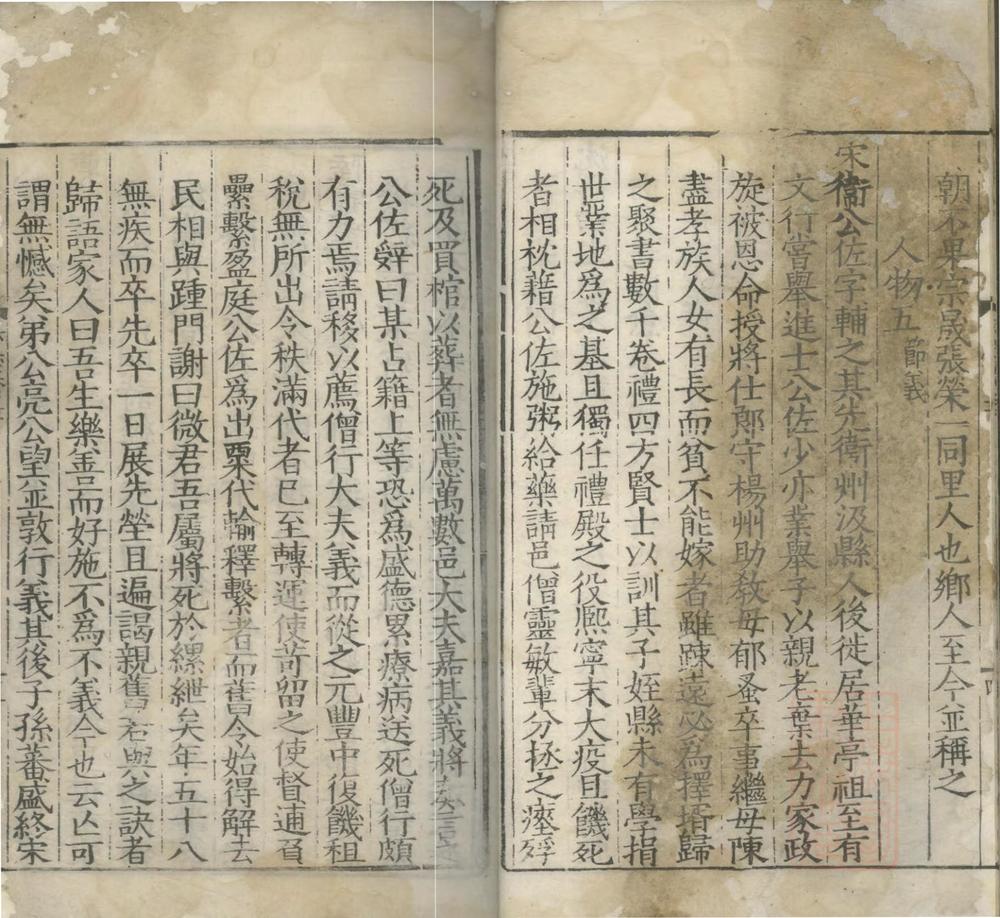 朝不果宗晟張榮一同里人也鄉人至今並稱之
人物五節義
宋衞公佐字輔之其先衛州汲縣人後徙居華亭祖至有
文行嘗舉進士公佐少亦業舉子以親老棄去力家政
旋被恩命授將仕郎守楊州助敎母郁蚤卒事繼母陳
盡孝族人女有長而貧不能嫁者雖踈遠必為擇壻歸
之聚書數千卷禮四方賢士以訓其子姪縣未有學捐
世業地爲之基且獨任禮殿之役熈寧末大疫且饑死
者相枕藉公佐施粥給藥請邑僧靈敏輩分拯之瘞殍
死及買棺以葬者無慮萬數邑大夫嘉其義將
公佐辤曰某占籍上等恐爲盛德累療病送死僧行頗
有力焉請移以薦僧行大夫義而從之元豐中復饑租
稅無所出令秩滿代者巳至轉運使苛留之使督逋負
纍繫盈庭公佐爲出粟代輸釋繫者而舊令始得解去
民相與踵門謝曰微君吾屬將死於縲紲矣年五十八
無疾而卒先卒一日展先塋且遍謁親舊若與之訣者
歸語家人曰吾生樂善而好施不爲不義今也云亾可
謂無憾矣弟公亮公望並敦行義其後子孫蕃盛終宋